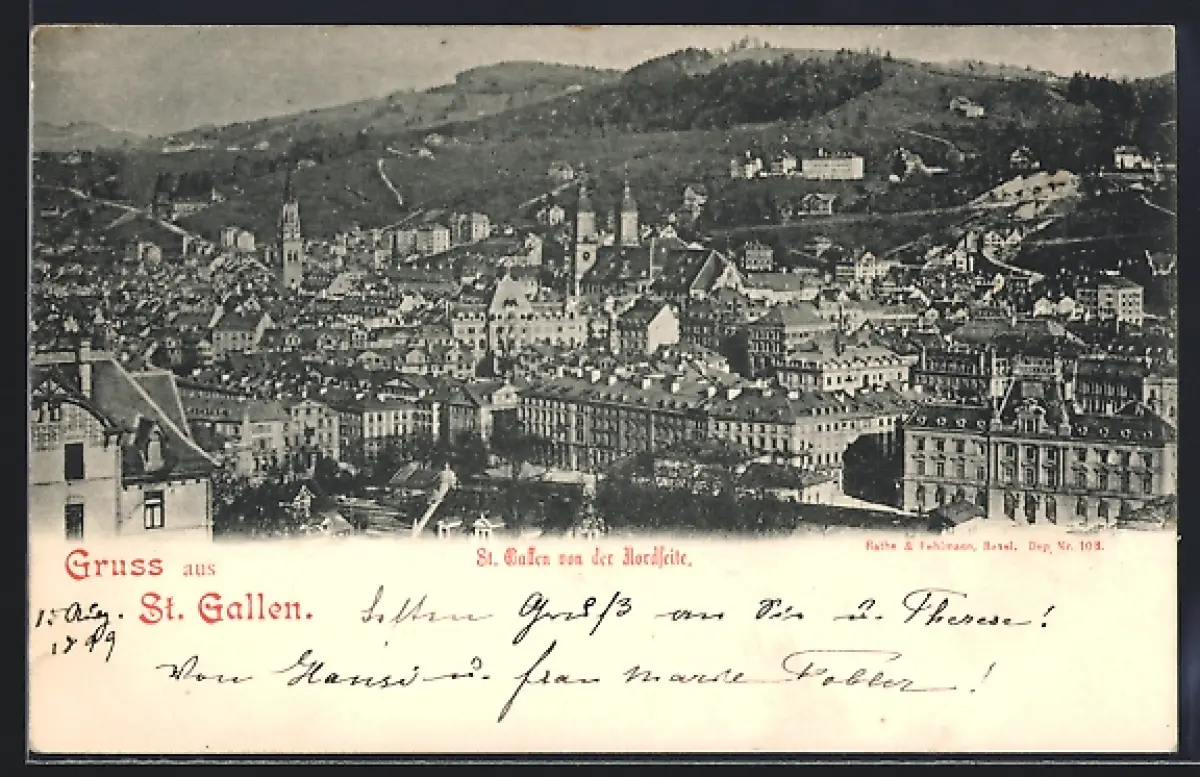 St. Gallen von der Nordseite.
Rathe & Fehlmann, Basel. Dep. Nr. 108.
Gruss aus
St. Gallen.
15 Aug.
1899
Gruß an Sie u. Therese!
Von Hansi u. frau Marie Tobler!